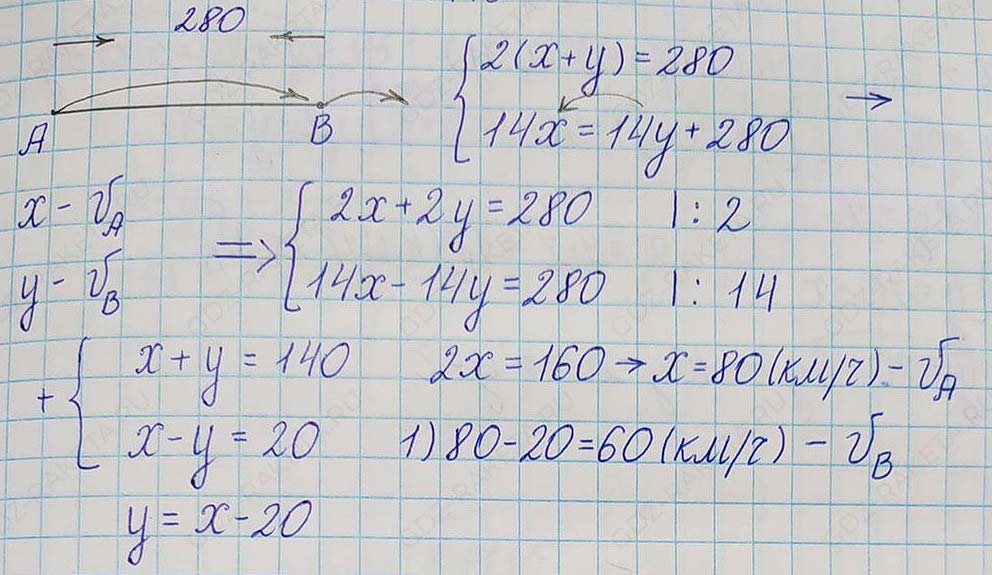 280
A B
{2(x+y)=280
{14x=14y+280 →
x - v_A
y - v_B
⇒ {2x+2y=280 |:2
{14x-14y=280 |:14
+ {x+y=140 2x=160→x=80(км/ч) - v_A
{x-y=20 1) 80-20=60(км/ч) - v_B
y=x-20